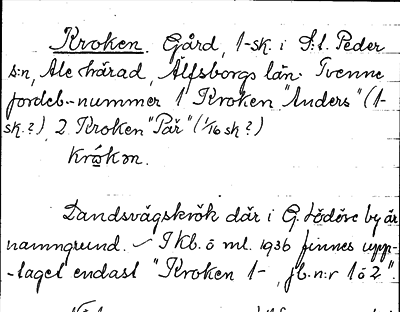 Kroken. Gård, 1-sk. i S:t. Peder
s:n, Ale härad, Älfsborgs län. Tvenne
jordeb.-nummer 1 Kroken "Anders" (1-
sk.?) 2 Kroken "Pär" (1/16 sk?)
krókən.
Landsvägskrök där i G. Lödöse by är
namngrund. – I kb. ö ml. 1936 finnes upp-
-taget endast "Kroken 1-, jb.n:r 1 o 2".